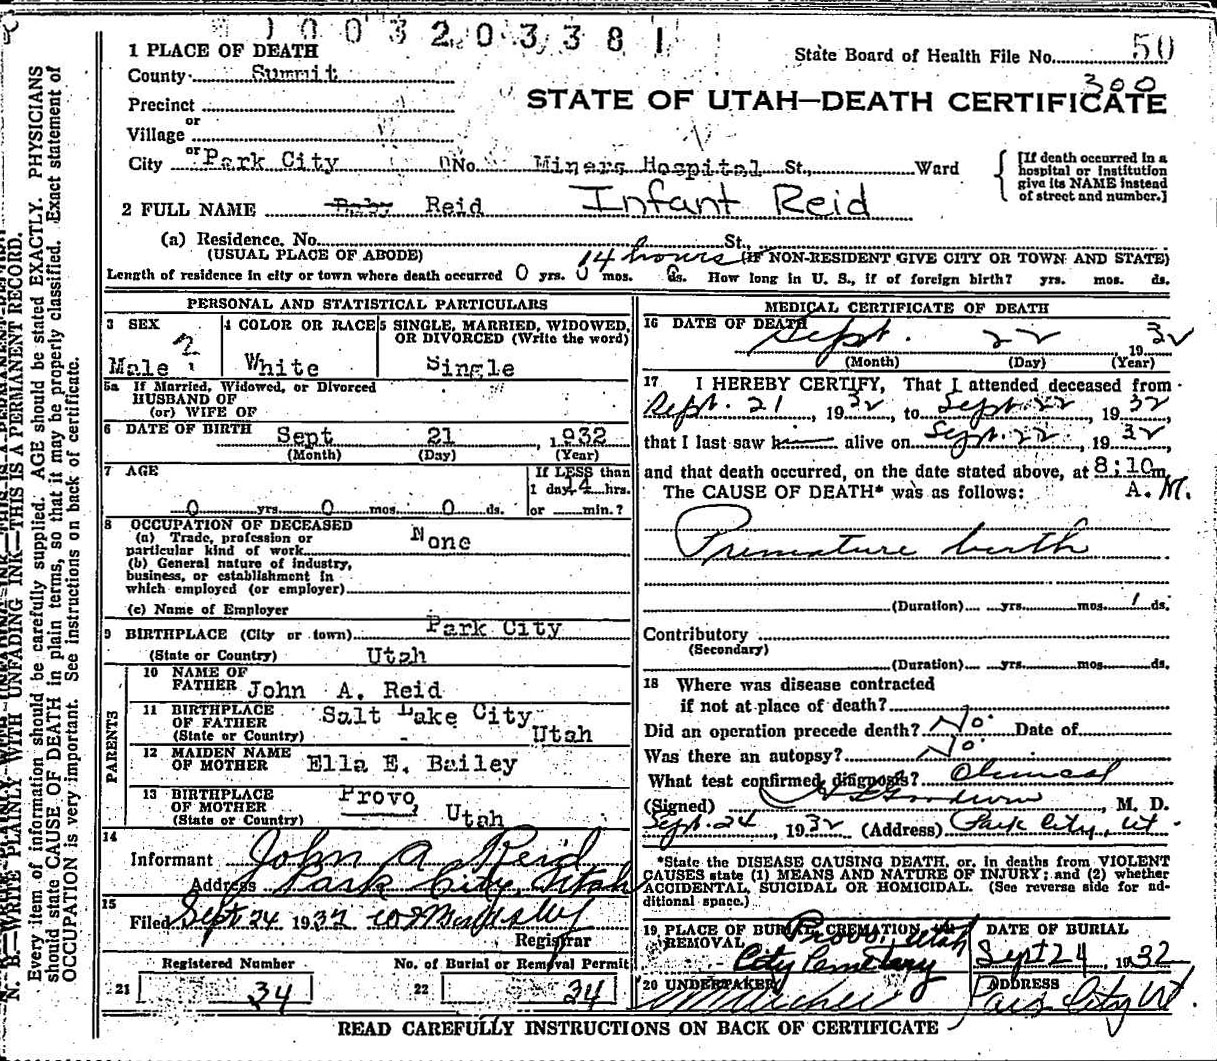 1003203381
1 PLACE OF DEATH
State Board of Health File No. 50
County Summit
300
Precinct
STATE OF UTAH—DEATH CERTIFICATE
or
Village
or
City Park City No. Miners Hospital St., Ward
[If death occurred in a hospital or institution give its NAME instead of street and number.]
2 FULL NAME Baby Reid Infant Reid
(a) Residence. No. St.,
(USUAL PLACE OF ABODE) 14 hours (IF NON-RESIDENT GIVE CITY OR TOWN AND STATE)
Length of residence in city or town where death occurred 0 yrs. 0 mos. 0 ds. How long in U. S., if of foreign birth? yrs. mos. ds.
PERSONAL AND STATISTICAL PARTICULARS
3 SEX
Male
4 COLOR OR RACE
White
5 SINGLE, MARRIED, WIDOWED, OR DIVORCED (Write the word)
Single
5a If Married, Widowed, or Divorced
HUSBAND OF
(or) WIFE OF
6 DATE OF BIRTH Sept 21, 1932
(Month) (Day) (Year)
7 AGE
If LESS than
1 day 14 hrs.
0 yrs. 0 mos. 0 ds. or min.?
8 OCCUPATION OF DECEASED
(a) Trade, profession or
particular kind of work None
(b) General nature of industry,
business, or establishment in
which employed (or employer)
(c) Name of Employer
9 BIRTHPLACE (City or town) Park City
(State or Country) Utah
PARENTS
10 NAME OF
FATHER John A. Reid
11 BIRTHPLACE
OF FATHER Salt Lake City
(State or Country) Utah
12 MAIDEN NAME
OF MOTHER Ella E. Bailey
13 BIRTHPLACE
OF MOTHER Provo,
(State or Country) Utah
14
Informant John A Reid
Address Park City Utah
15
Filed Sept 24 1932
Registrar
Registered Number No. of Burial or Removal Permit
21 34 22 34
MEDICAL CERTIFICATE OF DEATH
16 DATE OF DEATH
Sept. 22 1932
(Month) (Day) (Year)
17 I HEREBY CERTIFY, That I attended deceased from
Sept. 21, 1932, to Sept. 22, 1932
that I last saw h alive on Sept. 22, 1932
and that death occurred, on the date stated above, at 8:10 m.
The CAUSE OF DEATH* was as follows: A.M.
Premature birth
(Duration) yrs. mos. 1 ds.
Contributory
(Secondary)
(Duration) yrs. mos. ds.
18 Where was disease contracted
if not at place of death?
Did an operation precede death? No. Date of
Was there an autopsy? No.
What test confirmed diagnosis? Clinical
(Signed) , M. D.
Sept. 24, 1932 (Address) Park City, Ut.
*State the DISEASE CAUSING DEATH, or, in deaths from VIOLENT
CAUSES state (1) MEANS AND NATURE OF INJURY; and (2) whether
ACCIDENTAL, SUICIDAL OR HOMICIDAL. (See reverse side for additional space.)
19 PLACE OF BURIAL, CREMATION, OR REMOVAL
Provo, Utah
City Cemetary
DATE OF BURIAL
Sept 24, 1932
20 UNDERTAKER
ADDRESS
Park City Ut.
READ CAREFULLY INSTRUCTIONS ON BACK OF CERTIFICATE
N. B.—WRITE PLAINLY WITH UNFADING INK—THIS IS A PERMANENT RECORD.
Every item of information should be carefully supplied. AGE should be stated EXACTLY. PHYSICIANS
should state CAUSE OF DEATH in plain terms, so that it may be properly classified. Exact statement of
OCCUPATION is very important. See instructions on back of certificate.